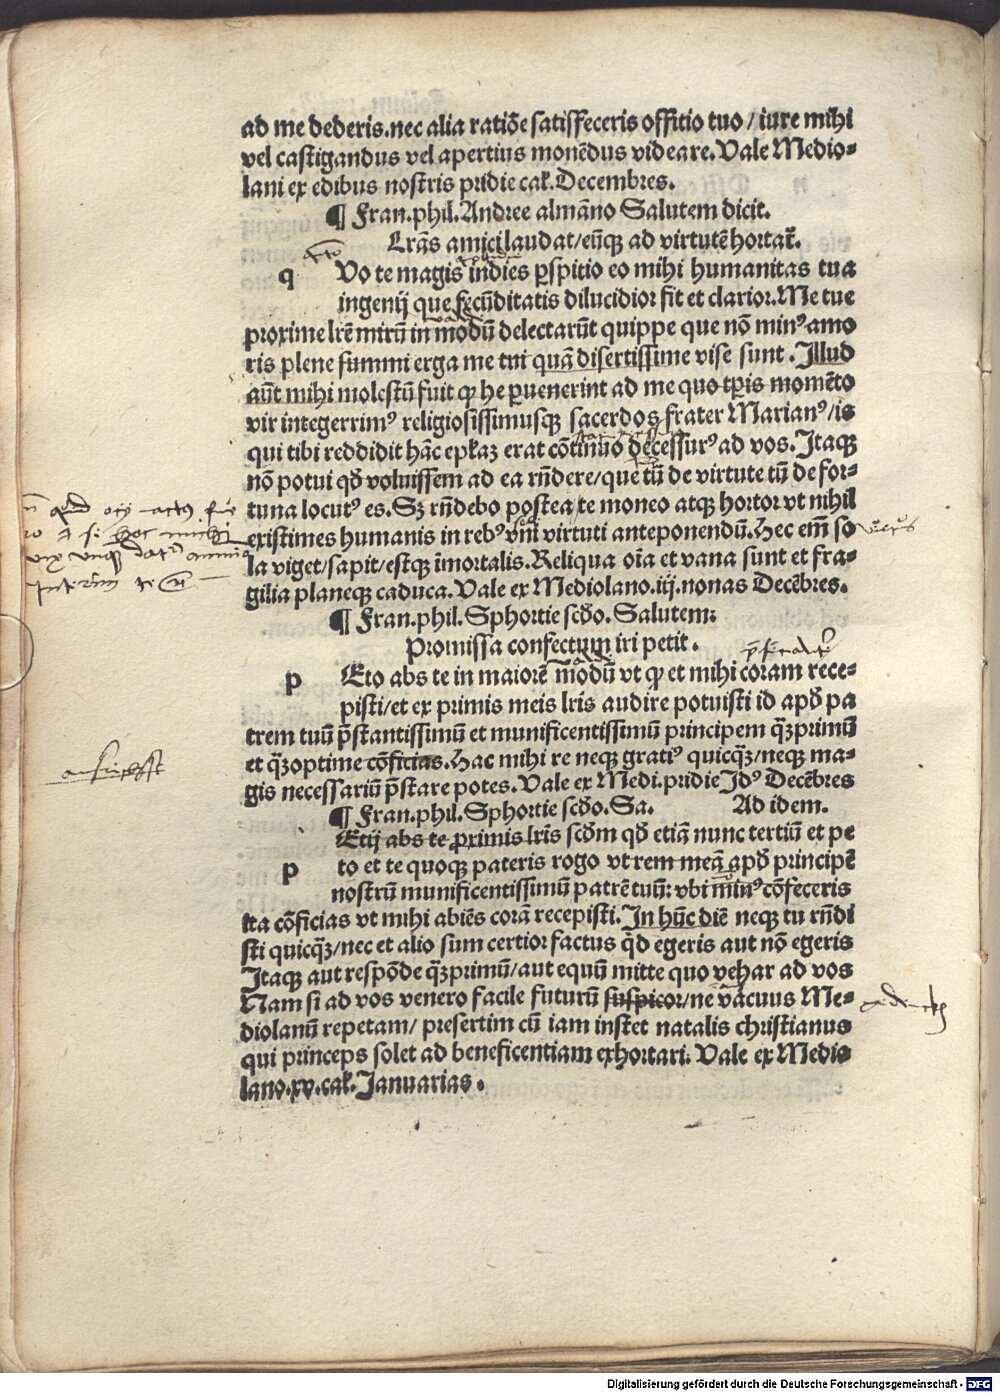 ad me dederis.nec alia ratiōe satisfeceris offitio tuo/iure mihi
vel castigandus vel apertius monēdus videare.Vale Medio-
lani ex edibus nostris pridie cal.Decembres.
¶ Fran.phil.Andree almāno Salutem dicit.
Lrās amici laudat/eūqꝫ ad virtutē hortat̄.
q Vo te magis indies ꝑspitio eo mihi humanitas tua
ingenij que fecūditatis dilucidior fit et clarior.Me tue
proxime lr̄e mirū in modū delectarūt quippe que nō minꝰ amo
ris plene summi erga me tui quā disertissime vise sunt.Illud
aūt mihi molestū fuit ꝙ he ꝑuenerint ad me quo tꝑis momēto
vir integerrimꝰ religiosissimusqꝫ sacerdos frater Marianꝰ/is
qui tibi reddidit hāc epl̄aꝫ erat cōtinuo decessurꝰ ad vos.Itaqꝫ
nō potui qd̄ voluissem ad ea rn̄dere/que tū de virtute tū de for-
tuna locutꝰ es.Sꝫ rn̄debo postea te moneo atqꝫ hortor vt nihil
existimes humanis in rebꝰ vn̄i virtuti anteponendū.Hec em̄ so
la viget/sapit/estqꝫ imortalis.Reliqua oīa et vana sunt et fra-
gilia planeqꝫ caduca.Vale ex Mediolano.iij.nonas Decēbres.
¶ Fran.phil.Sphortie scd̄o.Salutem:
Promissa confectum iri petit.
p Eto abs te in maiorē modū vt ꝙ et mihi coram rece-
pisti/et ex primis meis lr̄is audire potuisti id apd̄ pa
trem tuū p̄stantissimū et munificentissimū principem qꝫprimū
et qꝫoptime cōficias.Hac mihi re neqꝫ gratiꝰ quicqꝫ/neqꝫ ma-
gis necessariū p̄stare potes.Vale ex Medi.pridie Idꝰ Decēbres
¶ Fran.phil.Sphortie scd̄o.Sa. Ad idem.
Etij abs te proximis lr̄is scd̄m qd̄ etiā nunc tertiū et pe
p to et te quoqꝫ pateris rogo vt rem meā apd̄ principē
nostrū munificentissimū patrē tuū:vbi minꝰ cōfeceris
ita cōficias vt mihi abiēs corā recepisti.In hūc diē neqꝫ tu rn̄di
sti quicqꝫ/nec et alio sum certior factus qd̄ egeris aut nō egeris
Itaqꝫ aut respōde qꝫprimū/aut equū mitte quo vehar ad vos
Nam si ad vos venero facile futurū suspicor/ne vacuus Me-
diolanū repetam/presertim cū iam instet natalis christianus
qui princeps solet ad beneficentiam exhortari.Vale ex Medio
lano.xv.cal.Januarias.
Digitalisierung gefördert durch die Deutsche Forschungsgemeinschaft - DFG